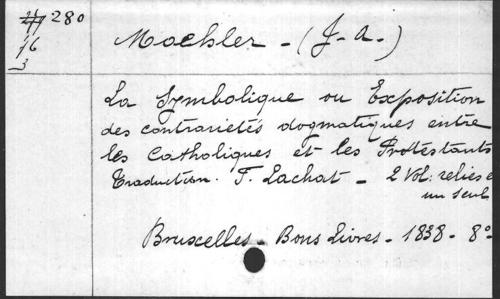 280
16
3
Moehler - (J. A.)
La Symbolique ou Exposition
des contrarietés dogmatiques entre
les Catholiques et les Protestants
Traduction. F. Lachat - 2 Vol: reliés e
un seul
Bruxelles - Bons Livres - 1838 - 8°